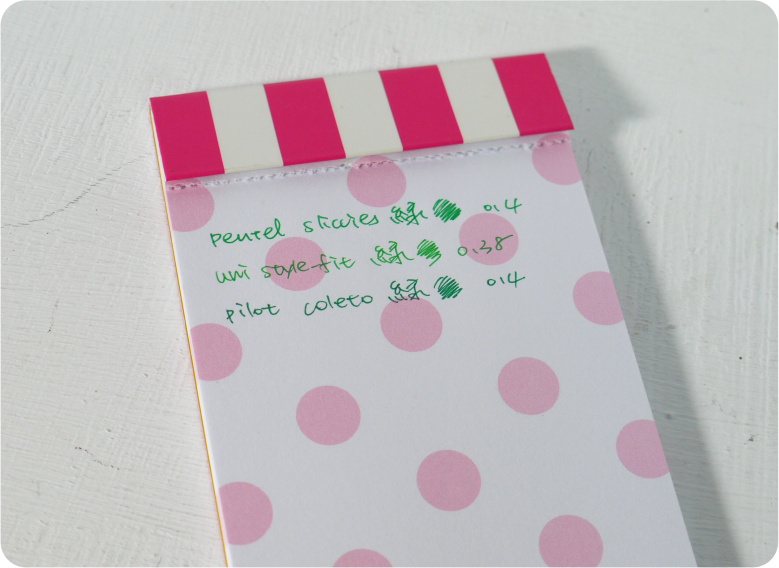 pentel slicies 緑 0.4
uni style-fit 緑 0.38
pilot coleto 緑 0.4